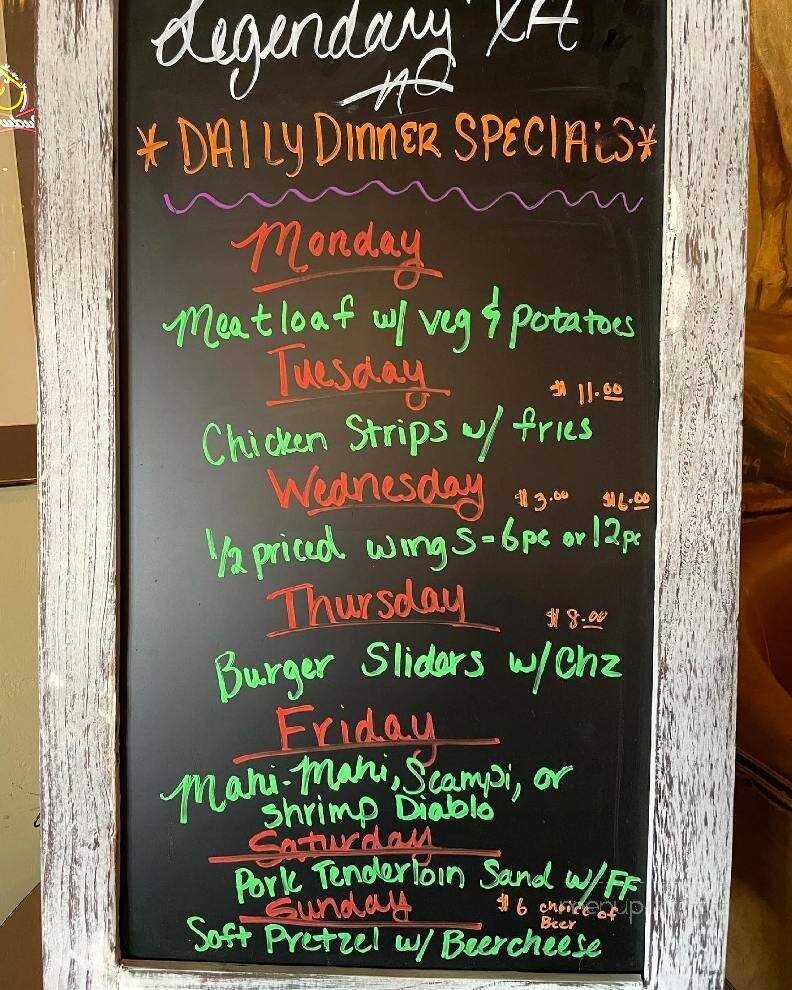 Legendary XA
HQ
* DAILY DINNER SPECIALS *
Monday
Meatloaf w/ veg & potatoes
Tuesday
$ 11.00
Chicken Strips w/ fries
Wednesday $3.00 $6.00
1/2 priced wings - 6pc or 12pc
Thursday
$ 8.00
Burger Sliders w/ Chz
Friday
Mahi-Mahi, Scampi, or
shrimp Diablo
Saturday
Pork Tenderloin Sand w/ FF
Sunday $6 choice of
Beer
Soft Pretzel w/ Beercheese